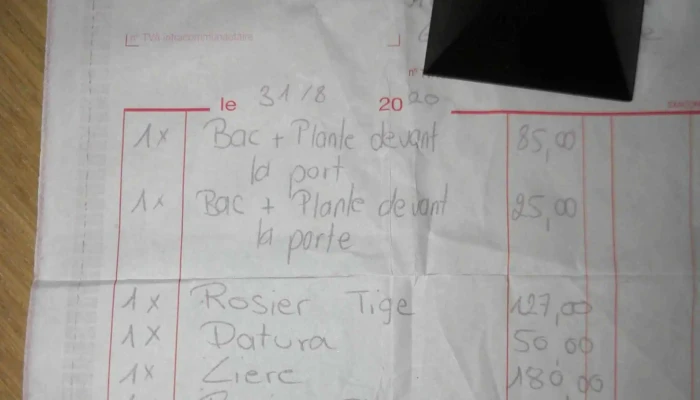 n° TVA intracommunautaire
n°
le 31/8 2020
1x Bac + Plante devant 85,00
la port
1x Bac + Plante devant 25,00
la porte
1x Rosier Tige 127,00
1x Datura 50,00
1x Liere 180,00